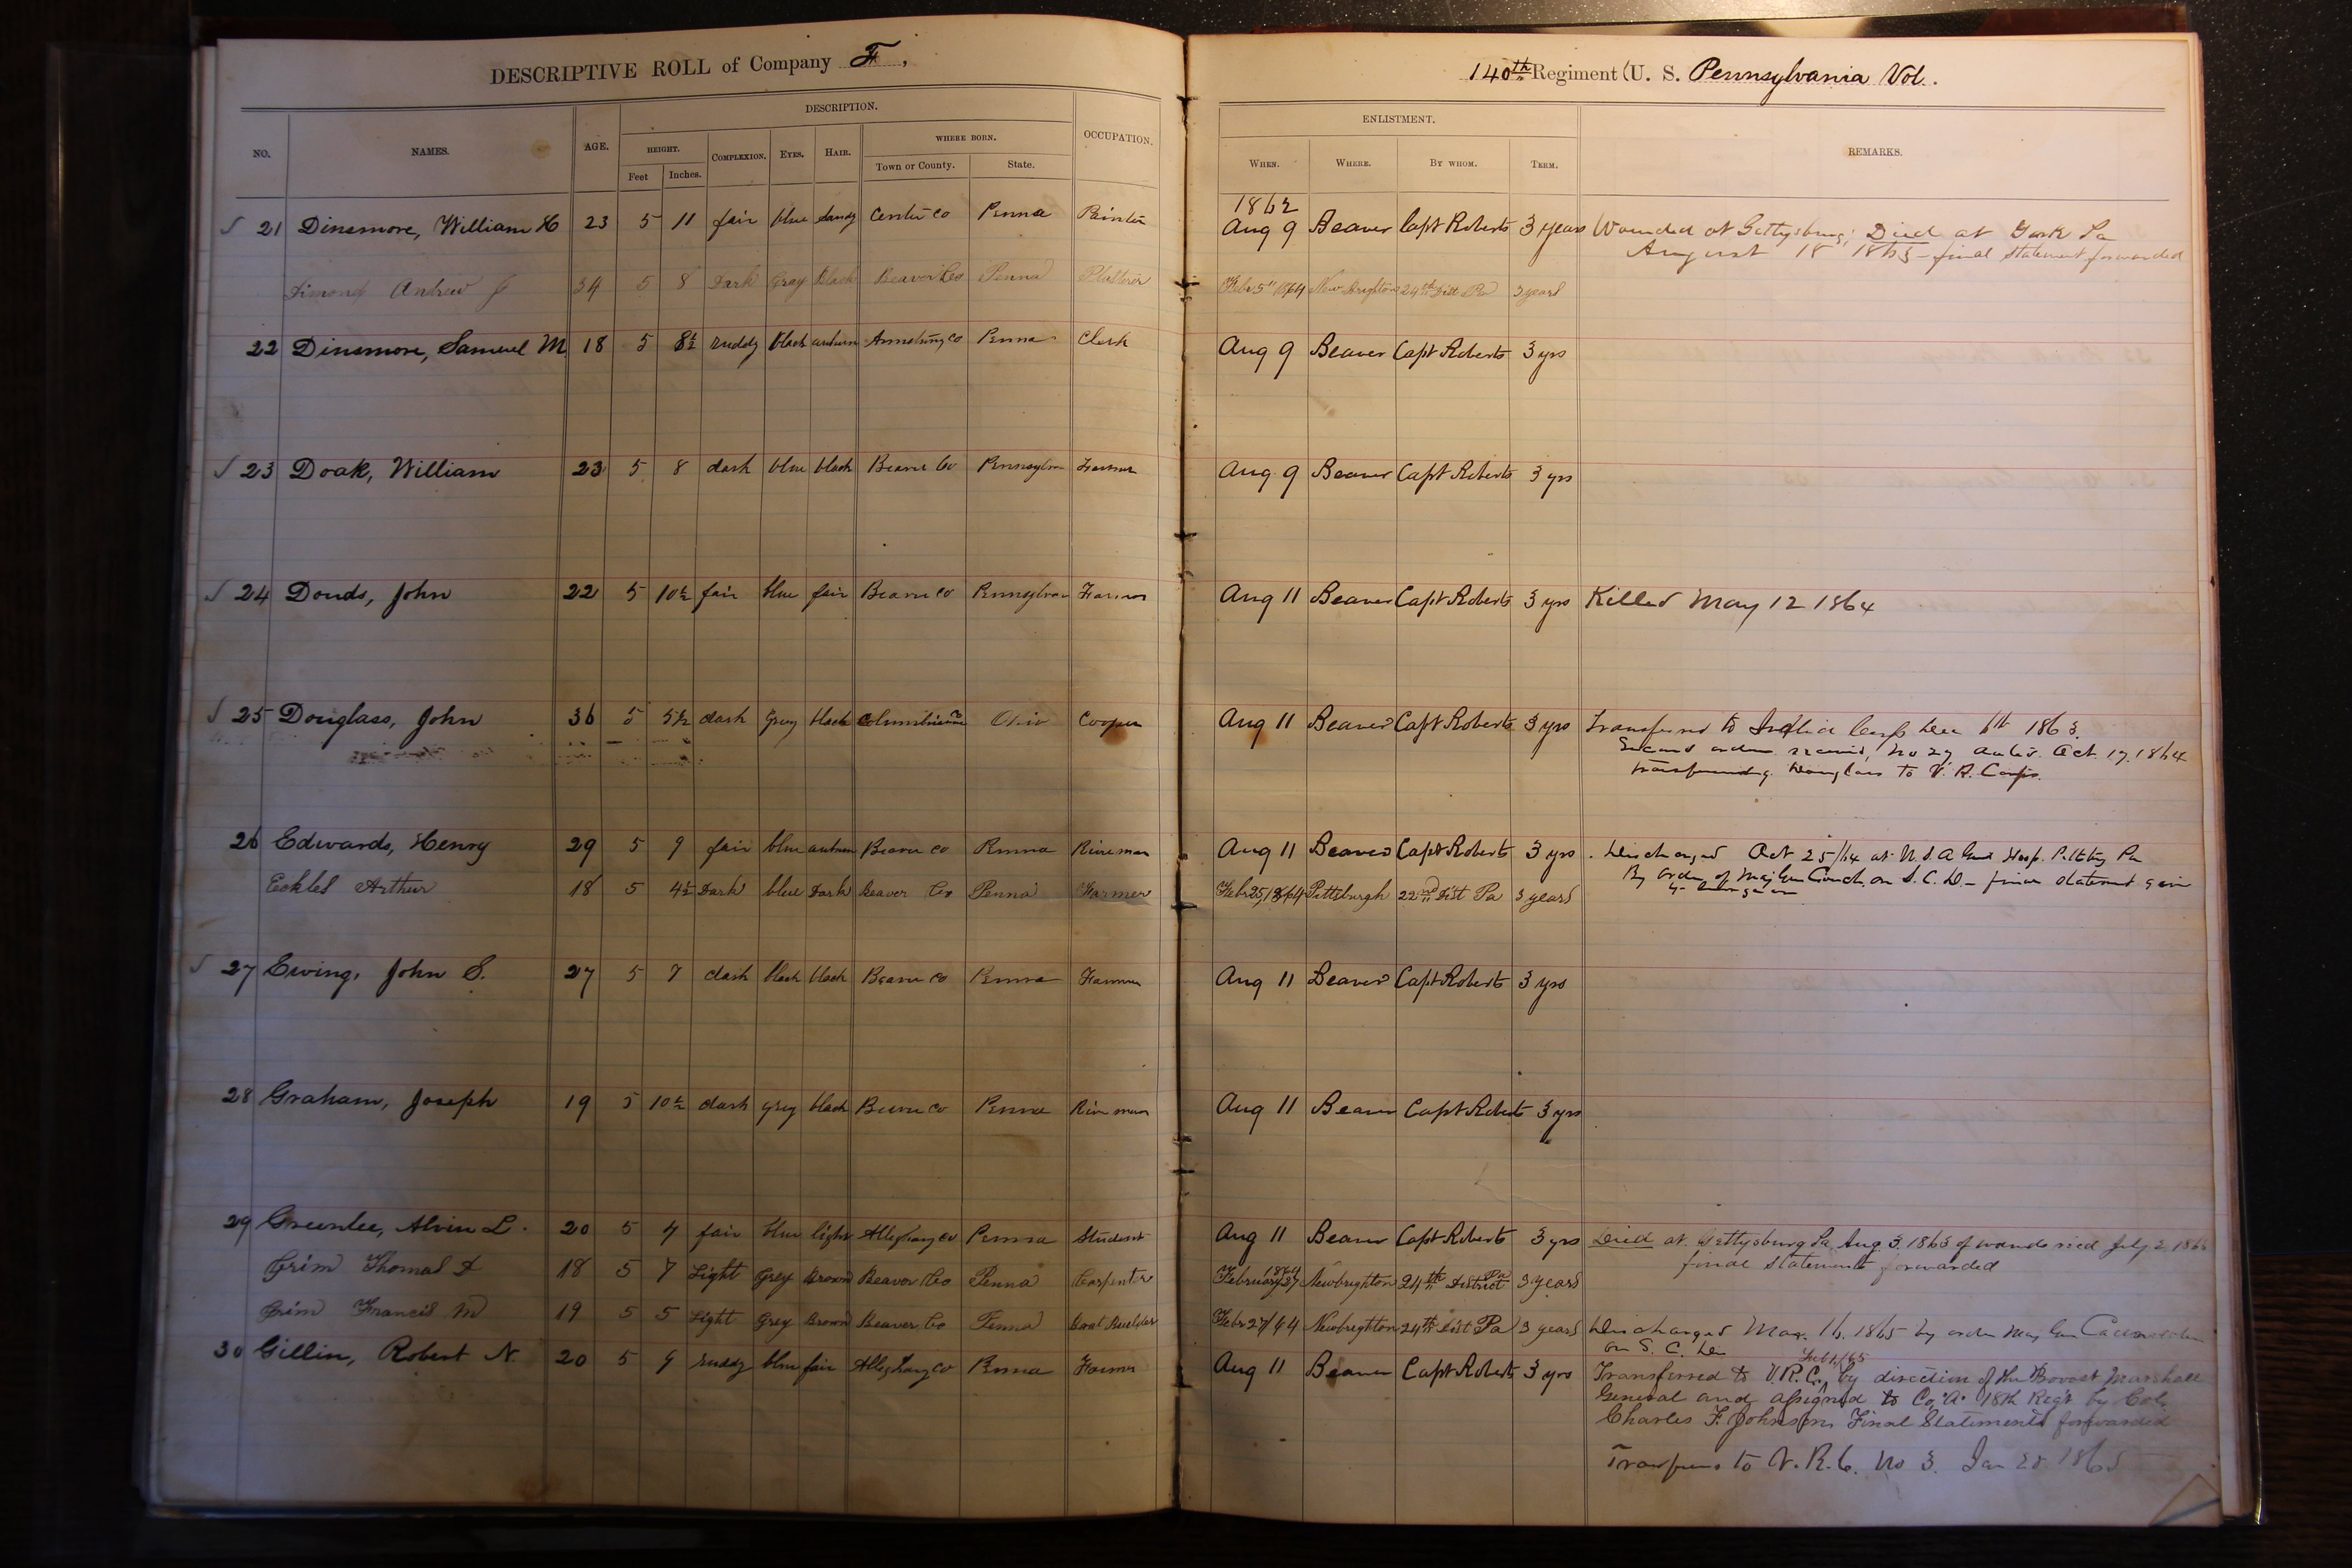 DESCRIPTIVE ROLL of Company F,
NO. NAMES. AGE. DESCRIPTION. OCCUPATION.
HEIGHT. COMPLEXION. EYES. HAIR. WHERE BORN.
Feet Inches. Town or County. State.
21 Dinsmore, William H 23 5 11 fair blue Sandy Center Co Penna Painter
Andrew J 34 5 8 Dark Gray Black Beaver Co Penna Plasterer
22 Dinsmore, Samuel M 18 5 8½ ruddy black auburn Armstrong Co Penna Clerk
23 Doak, William 23 5 8 dark blue black Beaver Co Farmer
24 Douds, John 22 5 10½ fair blue fair Beaver Co Farmer
25 Douglass, John 36 5 5½ dark Grey black Ohio Cooper
26 Edwards, Henry 29 5 9 fair blue auburn Beaver Co Penna River man
Eckles Arthur 18 5 4½ Dark blue Dark Beaver Co Penna Farmer
27 Ewing, John S. 27 5 7 dark black black Beaver Co Penna Farmer
28 Graham, Joseph 19 5 10½ dark grey black Beaver Co Penna River man
29 Greenlee, Alvin L. 20 5 fair blue light Allegheny Co Penna Student
Grim Thomas 18 5 7 Light Grey Brown Beaver Co Penna Carpenter
Grim Francis M 19 5 5 Light Grey Brown Beaver Co Penna Boat Builder
30 Gillin, Robert N. 20 5 9 ruddy blue fair Allegheny Co Penna Farmer
140th Regiment (U. S. Pennsylvania Vol.
ENLISTMENT. REMARKS.
WHEN. WHERE. BY WHOM. TERM.
1862
Aug 9 Beaver Capt Roberts 3 years Wounded at Gettysburg; Died at York Pa
August 18 1863 - final statement forwarded
Febr 5" 1864 New Brighton 24th Dist Pa 3 years
Aug 9 Beaver Capt Roberts 3 yrs
Aug 9 Beaver Capt Roberts 3 yrs
Aug 11 Beaver Capt Roberts 3 yrs Killed May 12 1864
Aug 11 Beaver Capt Roberts 3 yrs Transferred to Corps Dec 1863.
Second order received, No 27 Oct. 17. 1864
transferring Douglass to V. R. Corps.
Aug 11 Beaver Capt Roberts 3 yrs Discharged Oct 25/64 at U. S. A Genl Hosp. Pittsbg Pa
By order of Maj Gen Couch, on S. C. D - final statement given
Febr 25, 1864 Pittsburgh 22nd Dist Pa 3 years
Aug 11 Beaver Capt Roberts 3 yrs
Aug 11 Beaver Capt Roberts 3 yrs
Aug 11 Beaver Capt Roberts 3 yrs Died at Gettysburg Pa Aug 3. 1863 of wounds July 2 1863
final statements forwarded
February 27 1864 Newbrighton 24th District Pa 3 years
Febr 27/64 Newbrighton 24th Dist Pa 3 years Discharged 16. 1865 by order Maj Gen
on S. C. D
Aug 11 Beaver Capt Roberts 3 yrs Transferred to V. R. C., by direction of the Provost Marshall
General and assigned to Co. "A" 18th Regt by Col.
Charles F. Johnson, Final Statements forwarded
to V. R. C. No 3. Jan 1865